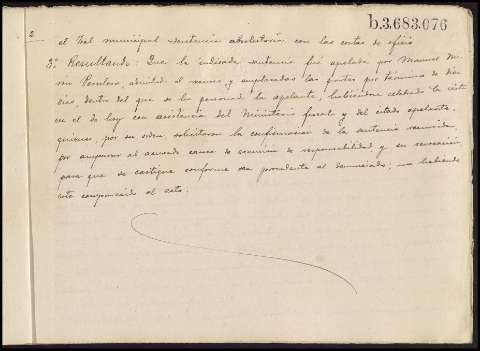 b.3.683.076
2
el Tal municipal sentencia absolutoria con las costas de oficio
3º Resultando: Que la indicada sentencia fué apelada por Manuel
admitido el recurso y emplazadas las partes por término de diez
dias, dentro del que se ha personado la apelante, habiendose celebrado la vista
en el de hoy con asistencia del Ministerio fiscal y del citado apelante,
quienes, por su orden, solicitaron la confirmacion de la sentencia recurrida
por amparar al acusado causa de exencion de responsabilidad y su revocación
para que se castigue conforme sea procedente al denunciado, no habiendo
este comparecido al acto.